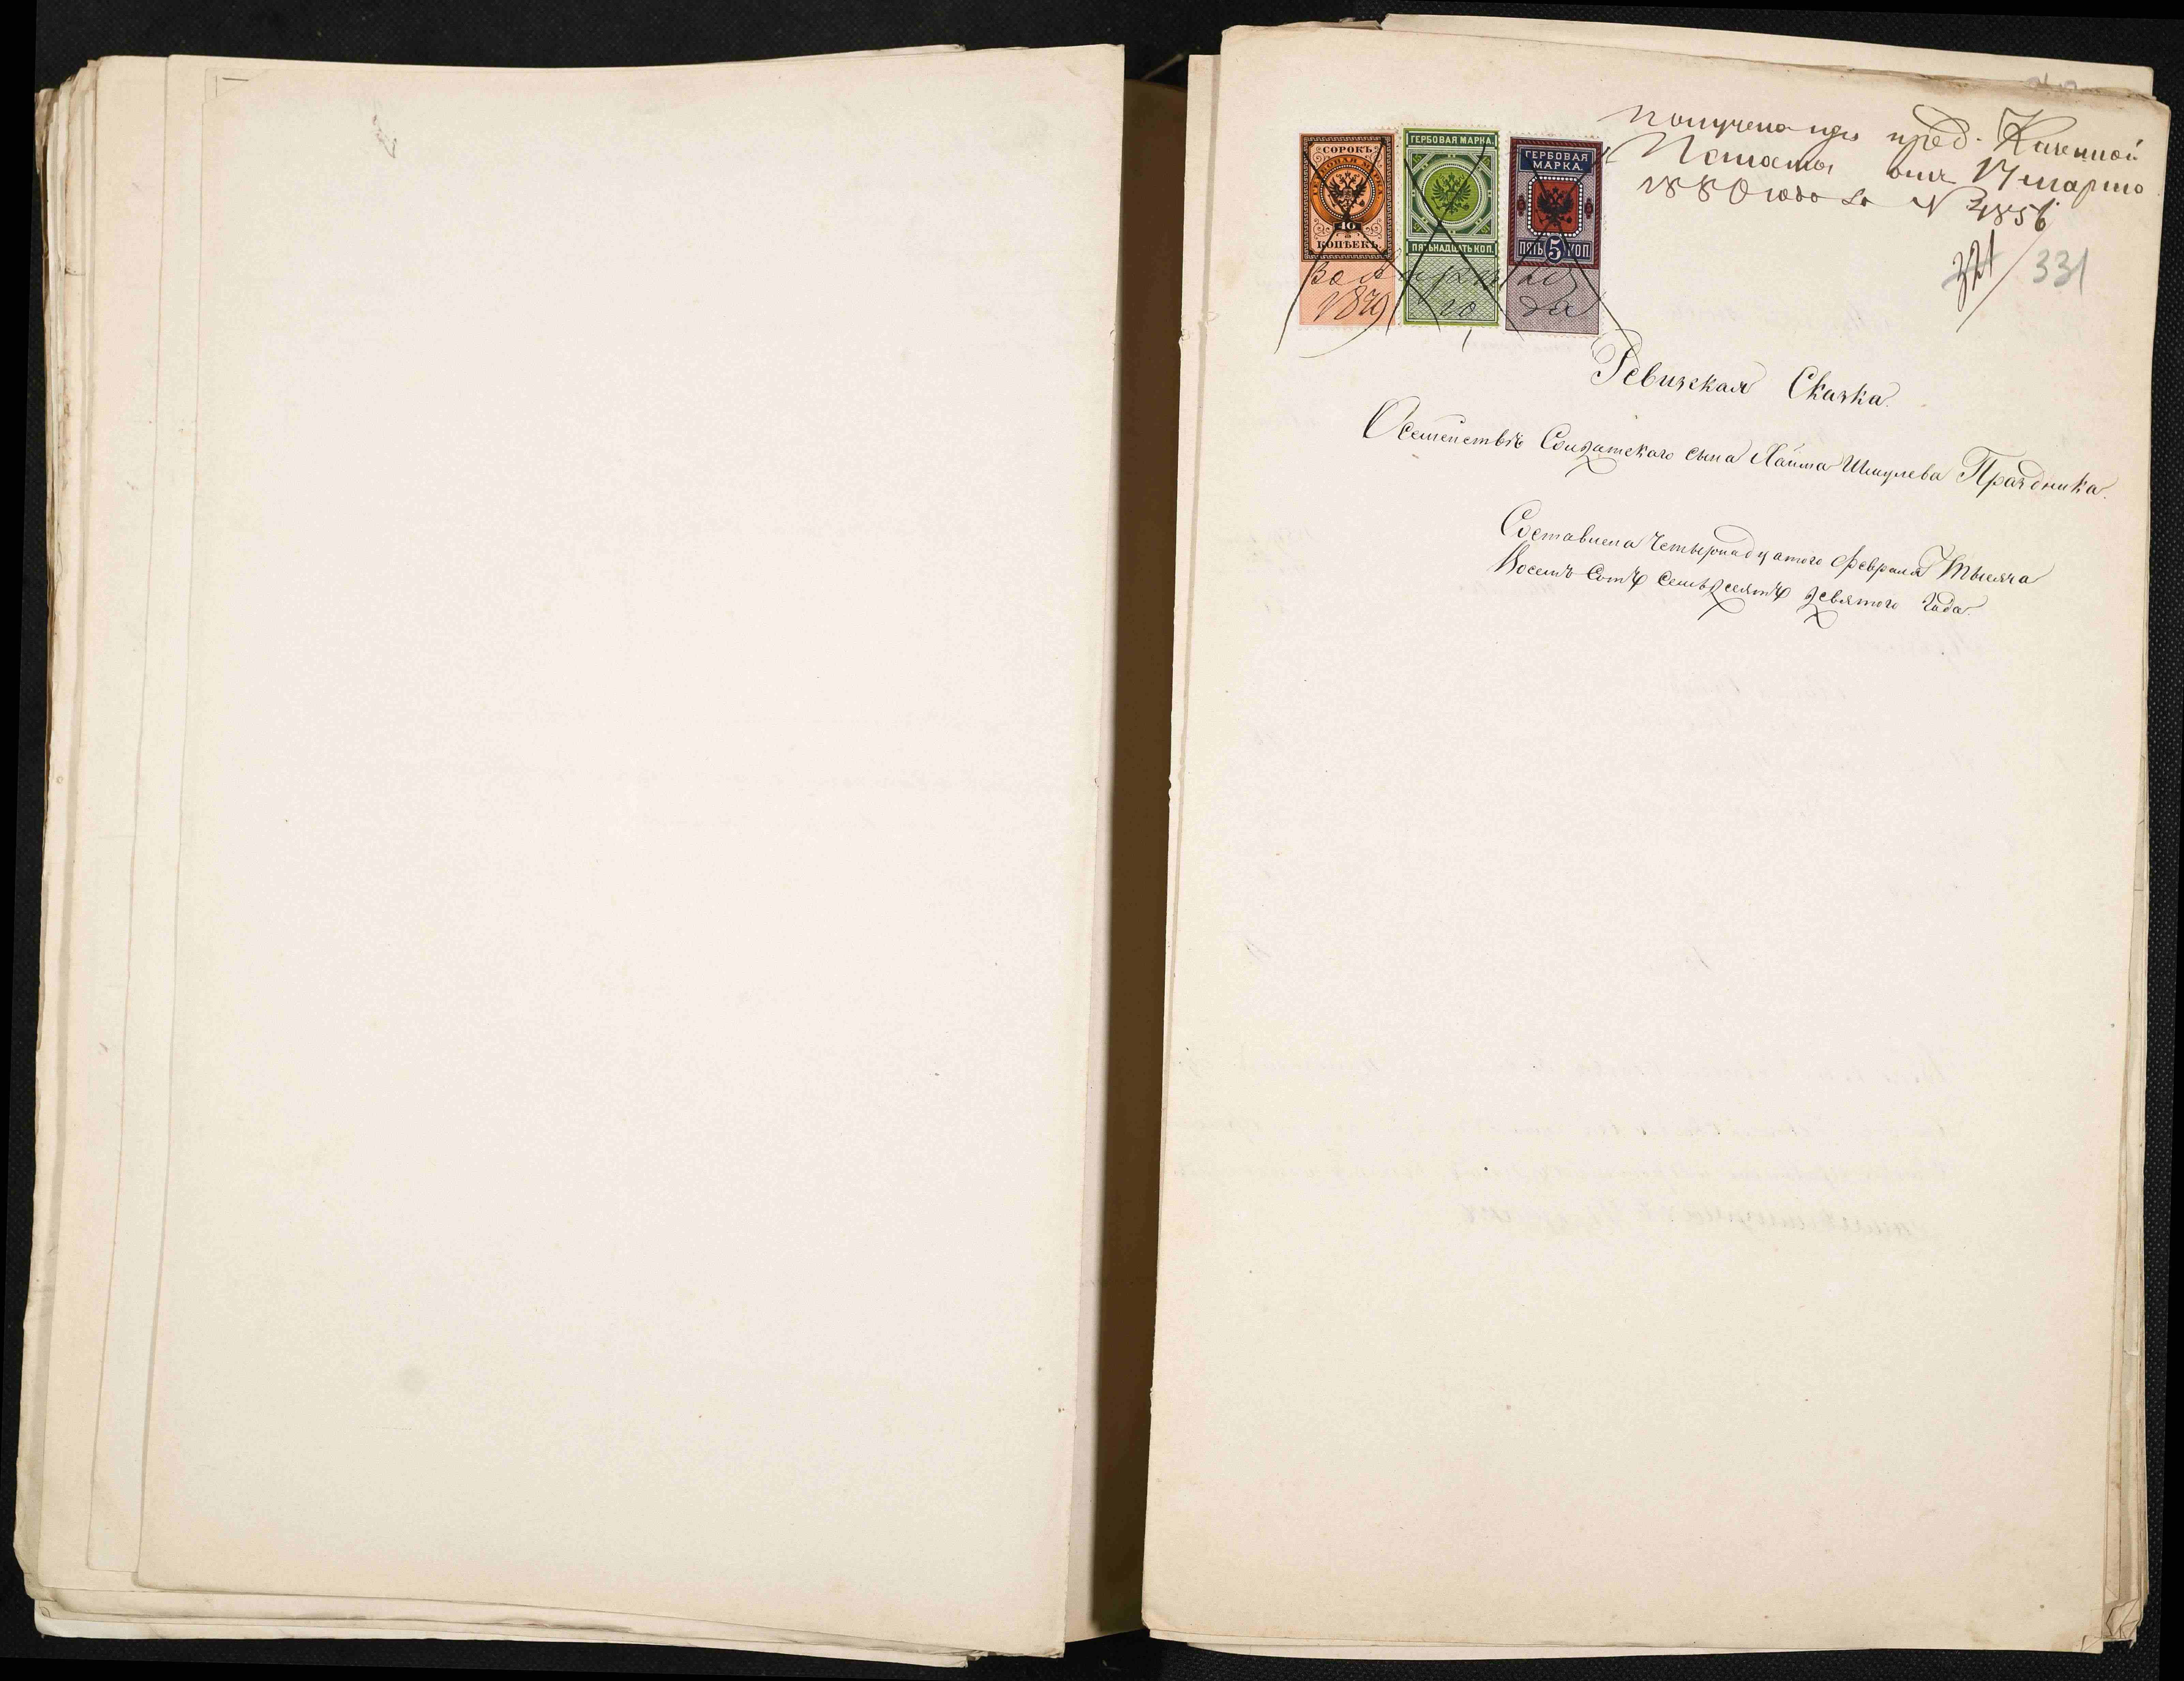 получена при пред. Казенной
Палаты отъ 17 марта
1880 года за № 2856
321 / 331
СОРОКЪ
ГЕРБОВАЯ МАРКА
40
КОПѢЕКЪ
ГЕРБОВАЯ МАРКА.
ПЯТЬНАДЦАТЬ КОП.
ГЕРБОВАЯ
МАРКА.
ПЯТЬ 5 КОП
30 Апрѣля
1879 го да
Ревизская Сказка.
О семействѣ Солдатскаго сына Хаима Шмулева Праздника.
Составлена Четырнадцатого Февраля Тысяча
Восемь Сотъ Семьдесятъ девятого Года.